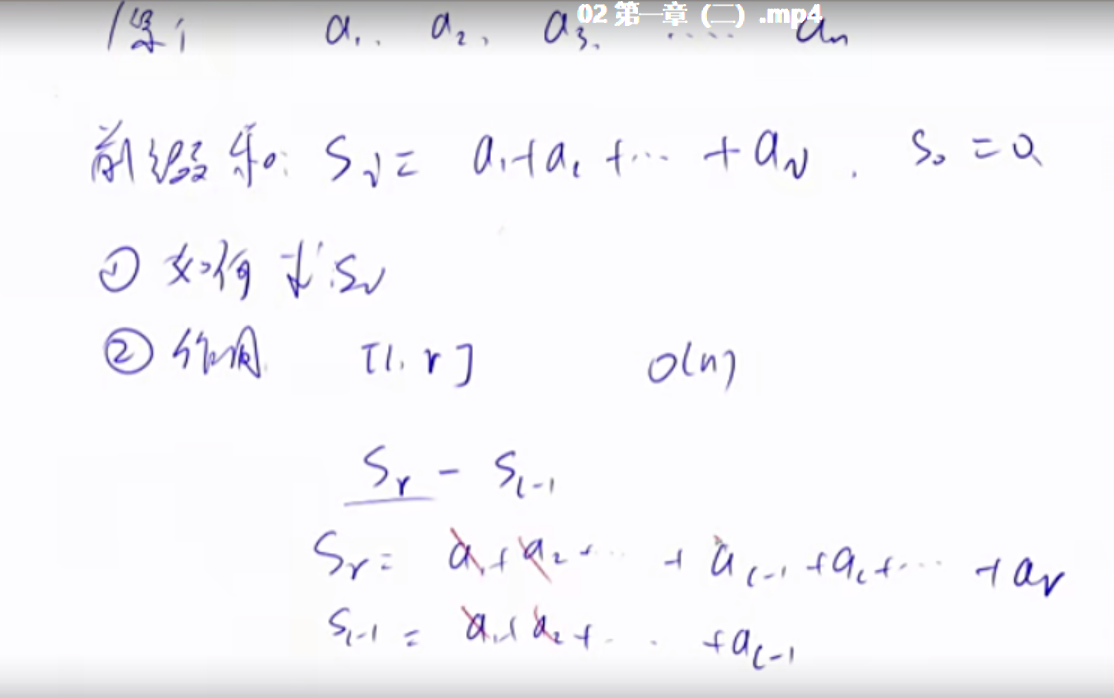 02 第一章（二）.mp4
a₁, a₂, a₃, ..... aₙ
前缀和: Sᵢ = a₁+a₂ +... +aᵢ. S₀ = 0
① 如何求Sᵢ
② 作用 [l, r] O(n)
Sᵣ - Sₗ₋₁
Sᵣ= a₁+a₂+... +aₗ₋₁+aₗ+... +aᵣ
Sₗ₋₁ = a₁+a₂+... +aₗ₋₁